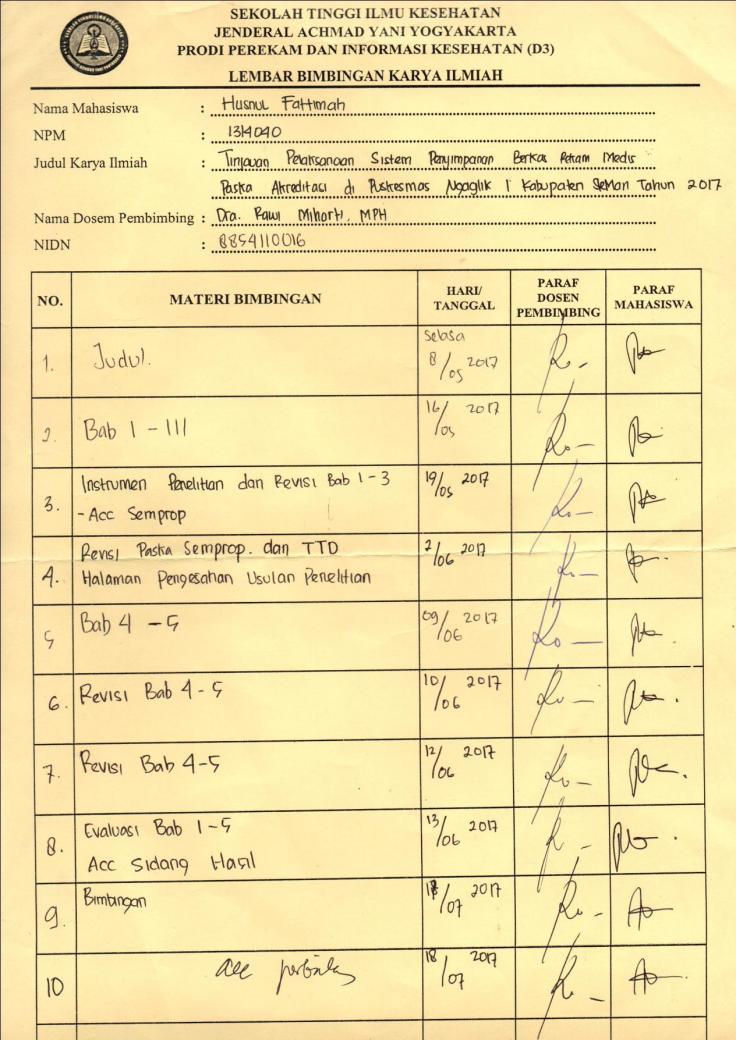 SEKOLAH TINGGI ILMU KESEHATAN
JENDERAL ACHMAD YANI YOGYAKARTA
PRODI PEREKAM DAN INFORMASI KESEHATAN (D3)
LEMBAR BIMBINGAN KARYA ILMIAH
Nama Mahasiswa : Husnul Fattimah
NPM : 1314040
Judul Karya Ilmiah : Tinjauan Pelaksanaan Sistem Penyimpanan Berkas Rekam Medis
Paska Akreditasi di Puskesmas Ngaglik I Kabupaten Sleman Tahun 2017
Nama Dosem Pembimbing : Dra. Rawi Miharti, MPH
NIDN : 8854110016
NO. MATERI BIMBINGAN HARI/ TANGGAL PARAF DOSEN PEMBIMBING PARAF MAHASISWA
1. Judul. Selasa 8/05 2017
2. Bab I - III 16/05 2017
3. Instrumen Penelitian dan Revisi Bab 1-3 19/05 2017
- Acc Semprop
4. Revisi Paska Semprop. dan TTD 2/06 2017
Halaman Pengesahan Usulan Penelitian
5 Bab 4 - 5 09/06 2017
6. Revisi Bab 4-5 10/06 2017
7. Revisi Bab 4-5 12/06 2017
8. Evaluasi Bab 1-5 13/06 2017
Acc Sidang Hasil
9. Bimbingan /07 2017
10 acc 18/07 2017